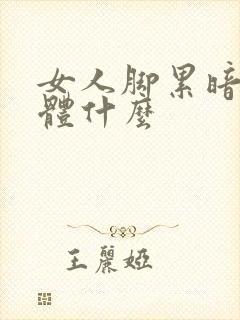 女人脚累暗
體什麼
王麗婭